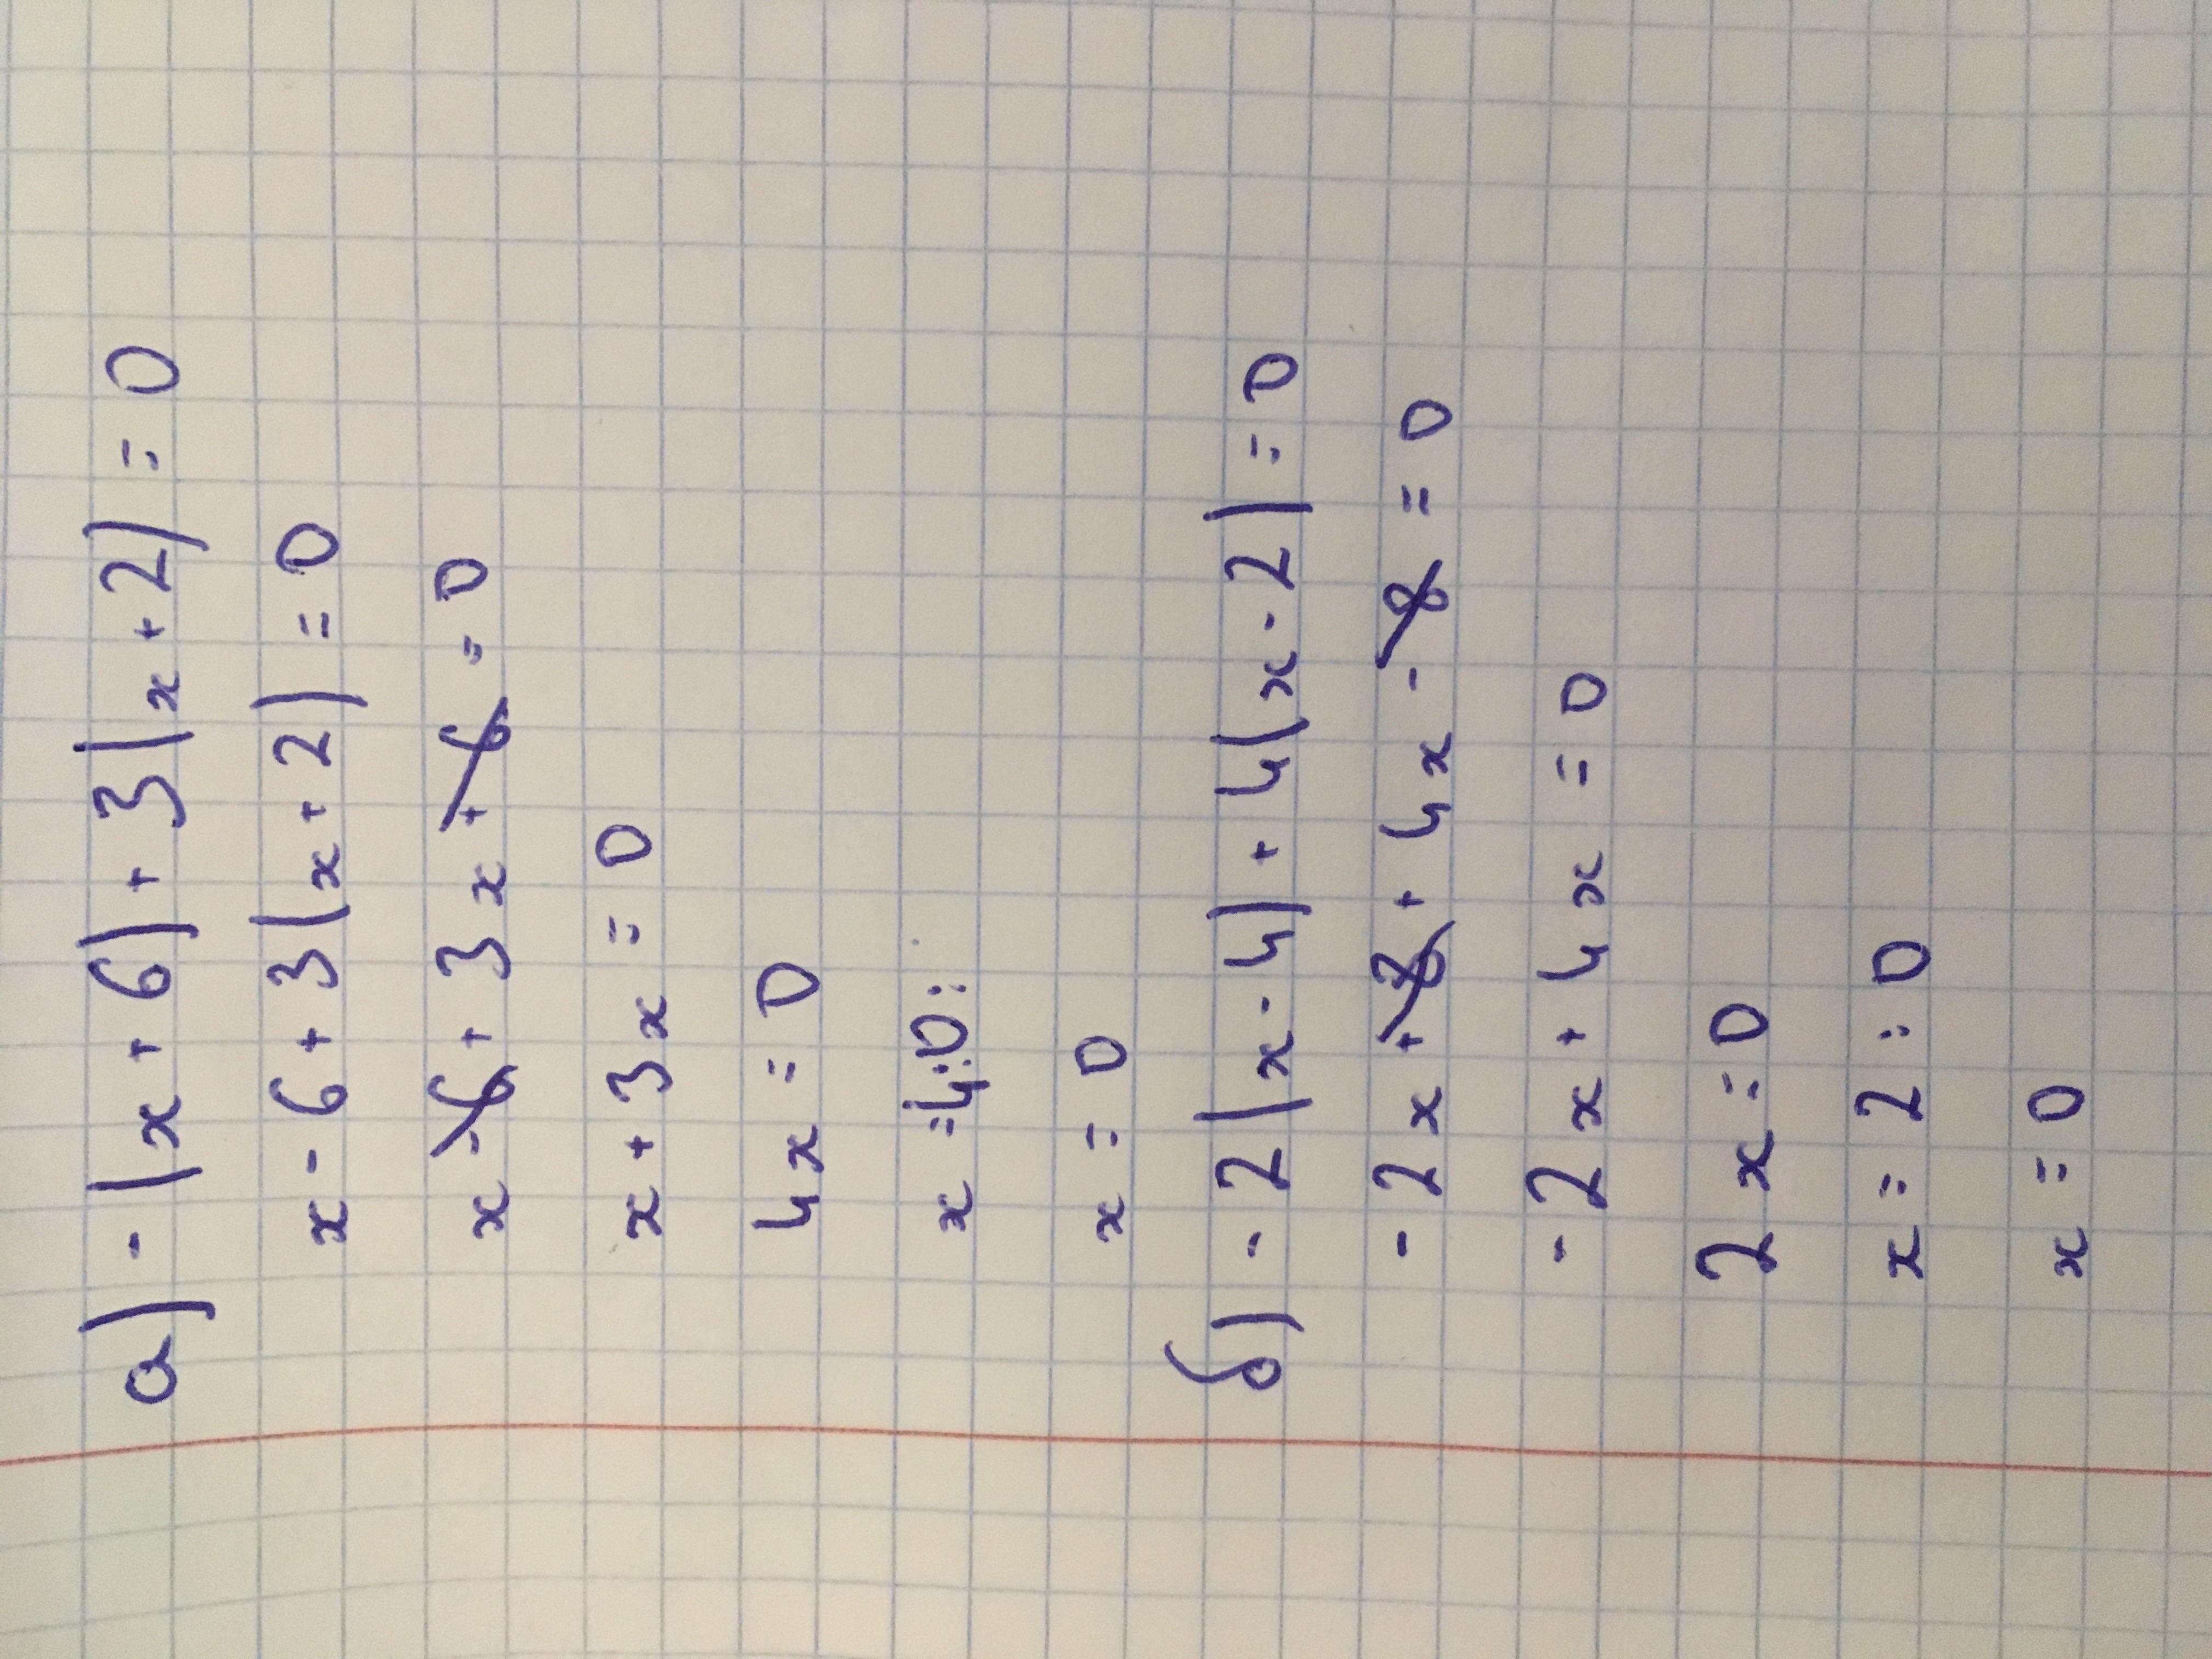 а) - (x + 6) + 3 (x + 2) = 0
x - 6 + 3 (x + 2) = 0
x - 6 + 3x + 6 = 0
x + 3x = 0
4x = 0
x = 4:0:
x = 0
б) - 2 (x - 4) + 4 (x - 2) = 0
- 2x + 8 + 4x - 8 = 0
- 2x + 4x = 0
2x = 0
x = 2 : 0
x = 0